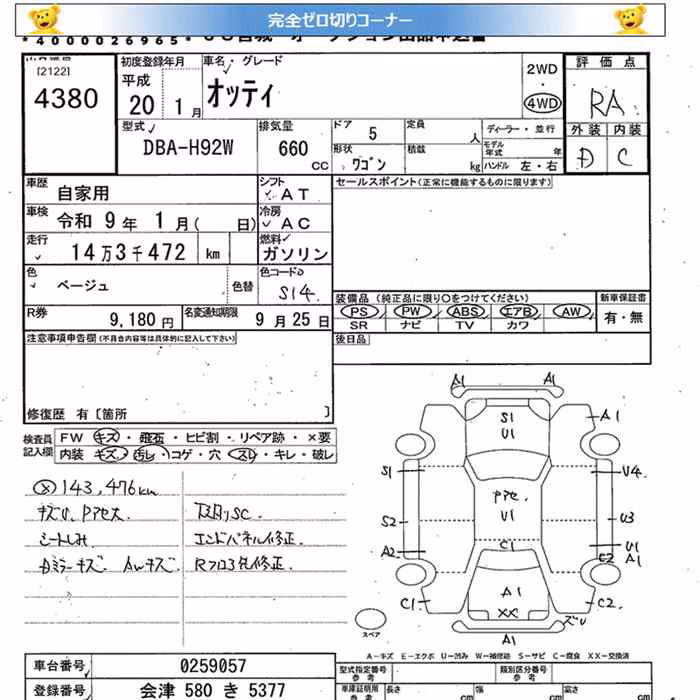 完全ゼロ切りコーナー
*4000026965*
[2122]
4380
初度登録年月
平成
20 1月
車名・グレード
オッティ
2WD
・
4WD
評価点
RA
外装 内装
D C
型式
DBA-H92W
排気量
660
CC
ドア 5
定員 人
形状 ワゴン
積載 kg
ディーラー・並行
モデル年式 年
ハンドル 左・右
車歴 自家用
シフト AT
車検 令和 9年 1月( 日)
冷房 AC
走行 14万3千472 km
燃料 ガソリン
色 ベージュ
色替
色コードNo
S14
R券 9,180円
名変通知期限 9月25日
セールスポイント(正常に機能するものに限ります)
装備品(純正品に限り○をつけてください)
新車保証書
PS PW ABS エアB AW
SR ナビ TV カワ
有・無
後日品
注意事項申告欄(不具合内容等は具体的に記入して下さい)
修復歴 有〔箇所 〕
検査員記入欄
FW キズ・飛石・ヒビ割・リペア跡・×要
内装 キズ・汚レ・コゲ・穴・スレ・キレ・破レ
143,476km
シートしみ
エンドパネル修正
Dミラーキズ AWキズ
A1 A1
S1
U1
A1
S1
U4
U1
S2
U3
C1
A2
U1
C2 A1
A1
XX
C1
C2
A1
スペア
A-キズ E-エクボ U-凹み W-補修跡 S-サビ C-腐食 XX-交換済
車台番号 0259057
登録番号 会津 580 き 5377
型式指定番号
参考
類別区分番号
参考
車庫証明用
参考
長さ cm
幅 cm
高さ cm